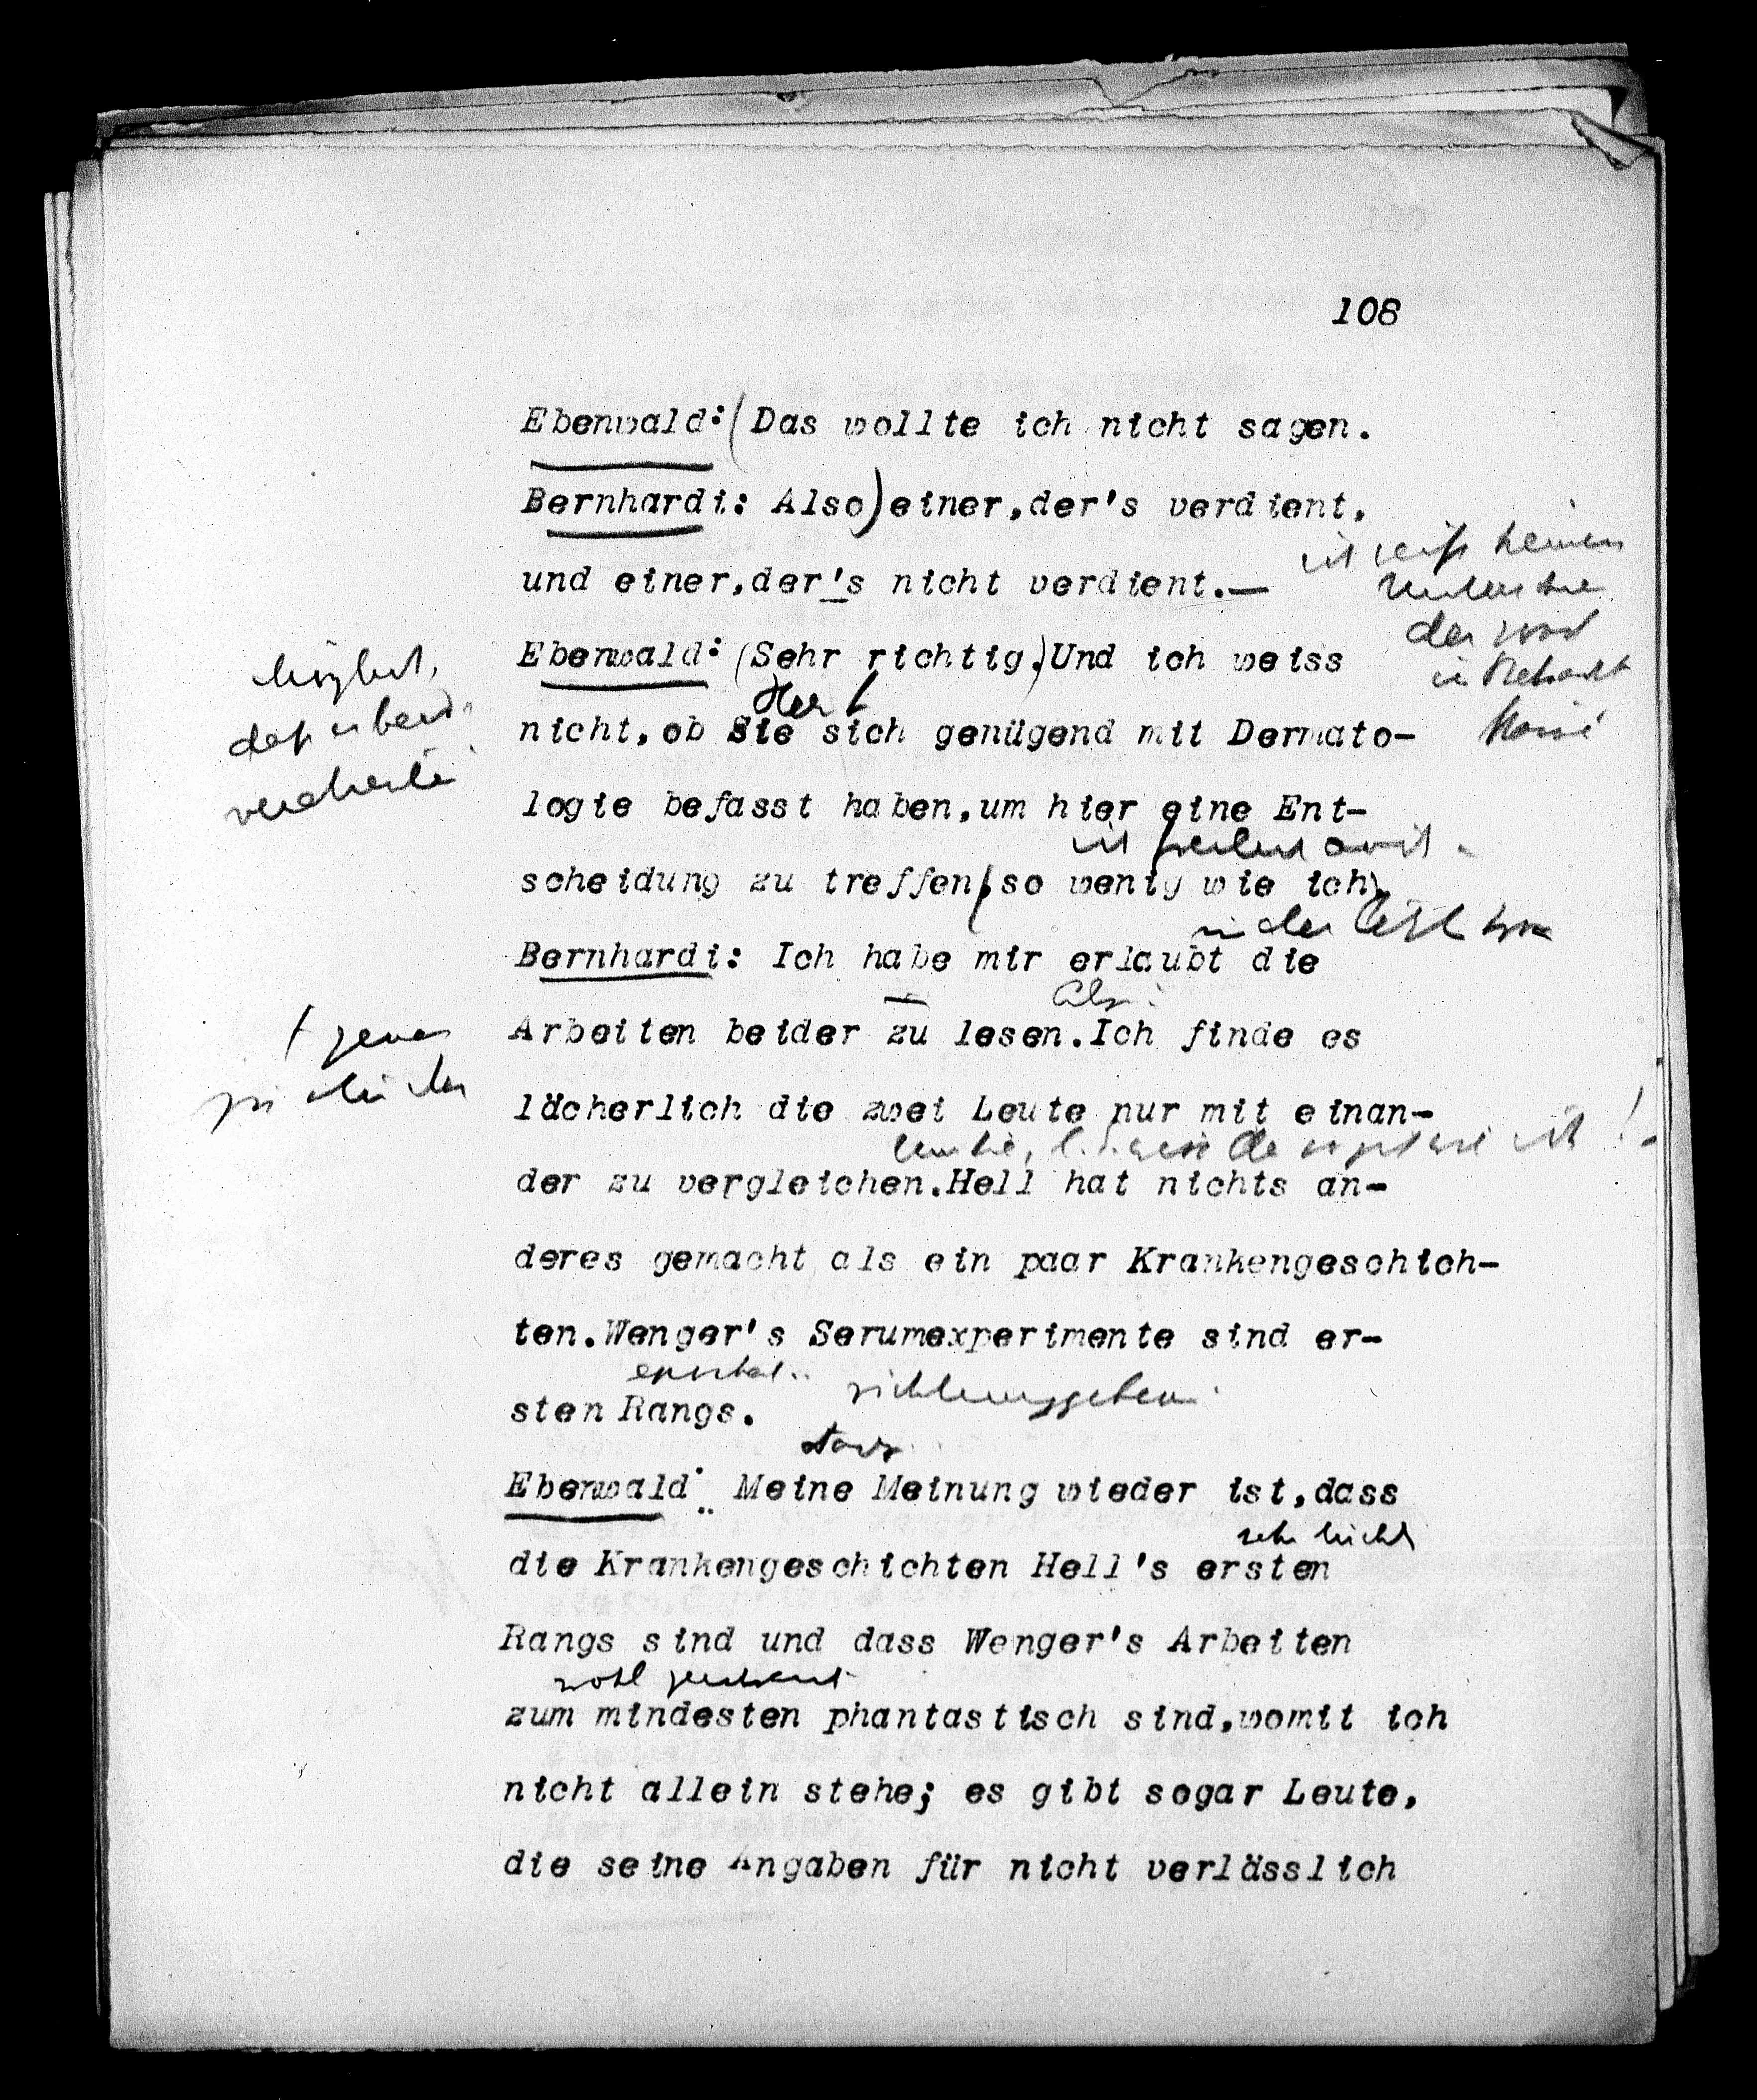 108
Ebenwald:(Das wollte ich nicht sagen.
Bernhardi: Also)einer,der's verdient,
und einer,der's nicht verdient.—
ich weiß keinen
der sonst
in Betracht
käme
Ebenwald:(Sehr richtig.)Und ich weiss
Möglich,
daß er beide
Herr
nicht,ob Sie sich genügend mit Dermato-
logie befasst haben,um hier eine Ent-
ich freilich auch
scheidung zu treffen(,so wenig wie ich).
in der letzten
Bernhardi: Ich habe mir erlaubt die
Also
Arbeiten beider zu lesen.Ich finde es
lächerlich die zwei Leute nur mit einan-
der zu vergleichen.Hell hat nichts an-
deres gemacht als ein paar Krankengeschich-
ten.Wenger's Serumexperimente sind er-
richtunggebend
sten Rangs.
Ebenwald: Meine Meinung wieder ist,dass
sehr leicht
die Krankengeschichten Hell's ersten
Rangs sind und dass Wenger's Arbeiten
wohl
zum mindesten phantastisch sind,womit ich
nicht allein stehe; es gibt sogar Leute,
die seine Angaben für nicht verlässlich